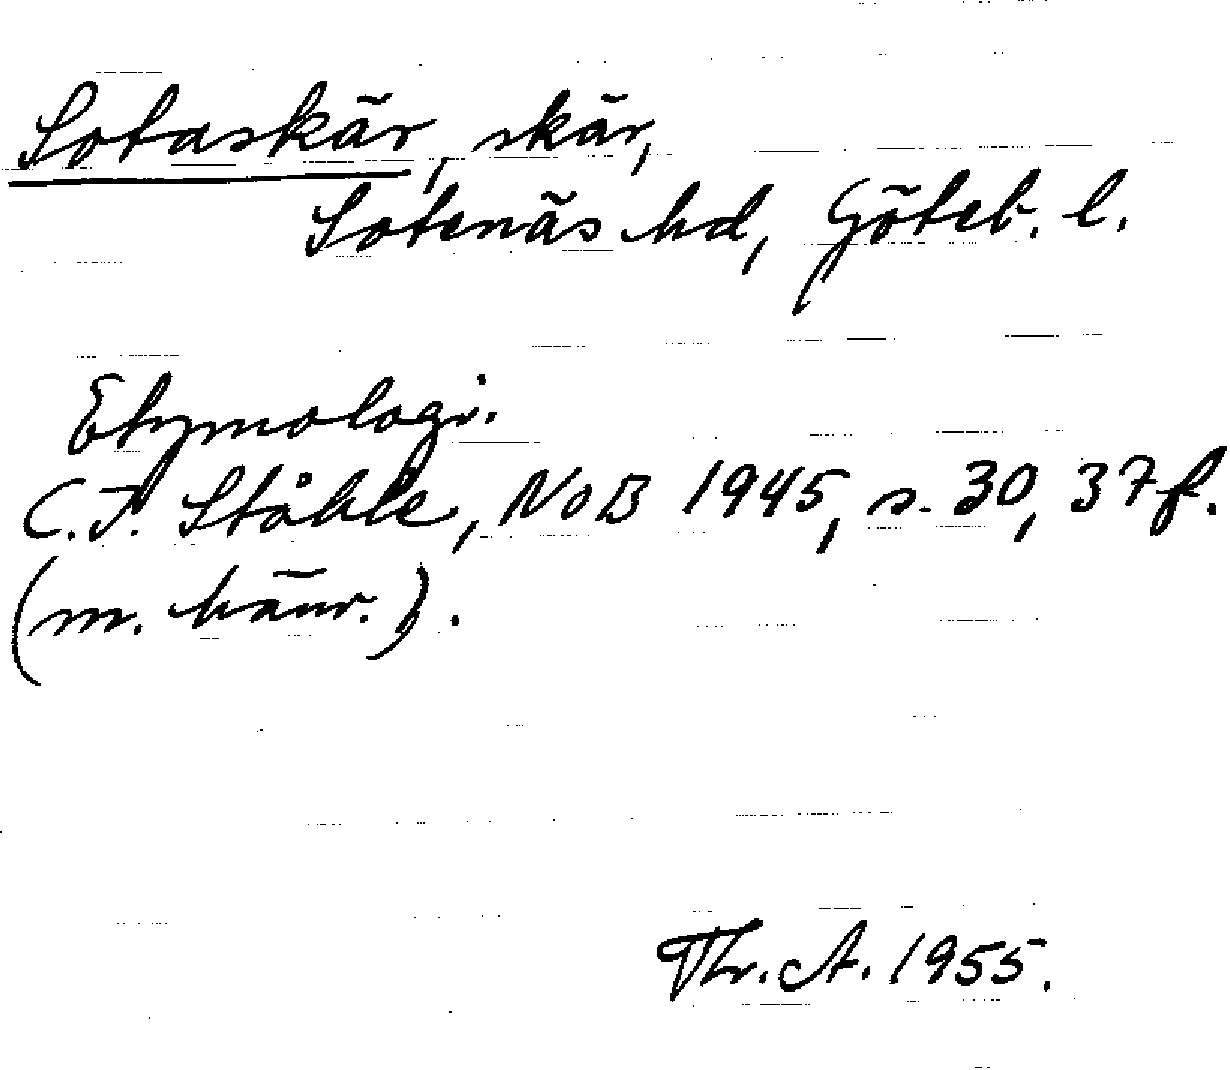 Sotaskär, skär,
Sotenäs hd, Göteb. l.
Etymologi.
C. I. Ståhle, NoB 1945, s. 30, 37f.
(m. hänv.).
Th. A. 1955.